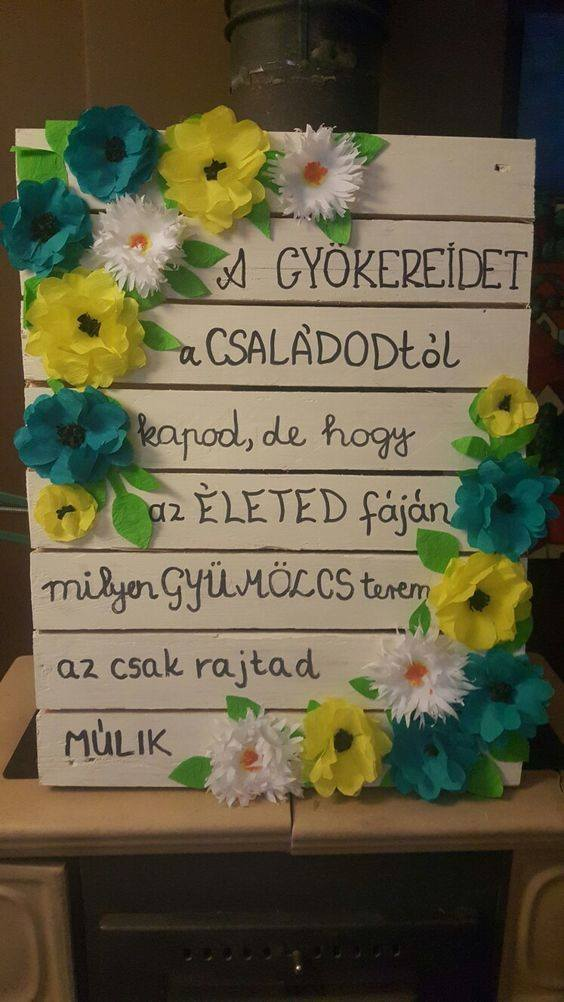 A GYÖKEREIDET
a CSALÁDODtól
kapod, de hogy
az ÈLETED fáján
milyen GYÜMÖLCS terem
az csak rajtad
MÚLIK